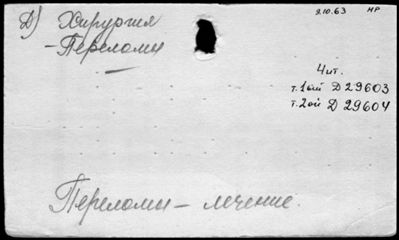 Д) Хирургия
- Переломы
9.10.63 НР
Чит.
т.1ый Д 29603
т.2ой Д 29604
Переломы – лечение.